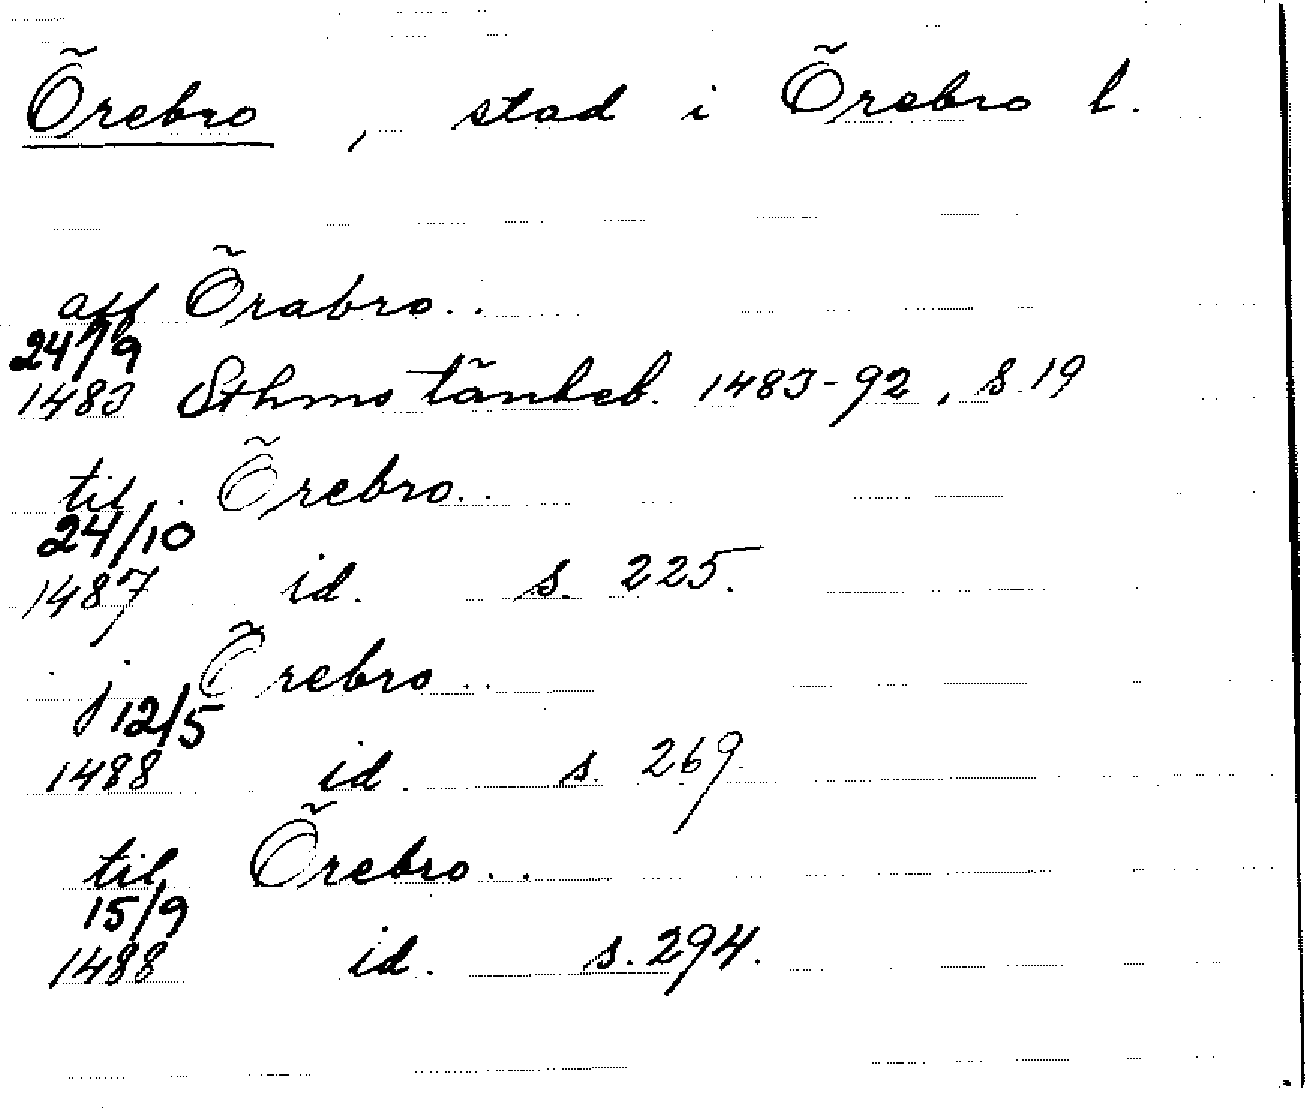 Örebro, stad i Örebro l.
aff Örabro..
24/9
1483 Sthms tänkeb. 1483-92, s. 19
til.. Örebro..
24/10
1487 id. s. 225.
j Örebro..
12/5
1488 id. s. 269
til Örebro..
15/9
1488 id. s. 294.